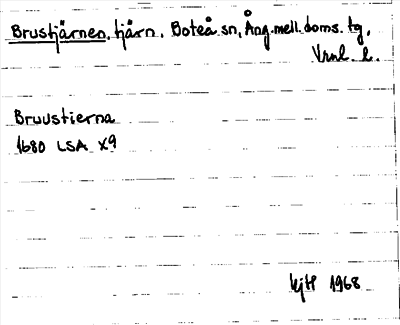 Brustjärnen, tjärn, Boteå sn, Ång. mell. doms. tg,
Vrnl. l.
Bruustierna
1680 LSA X9
kjH 1968